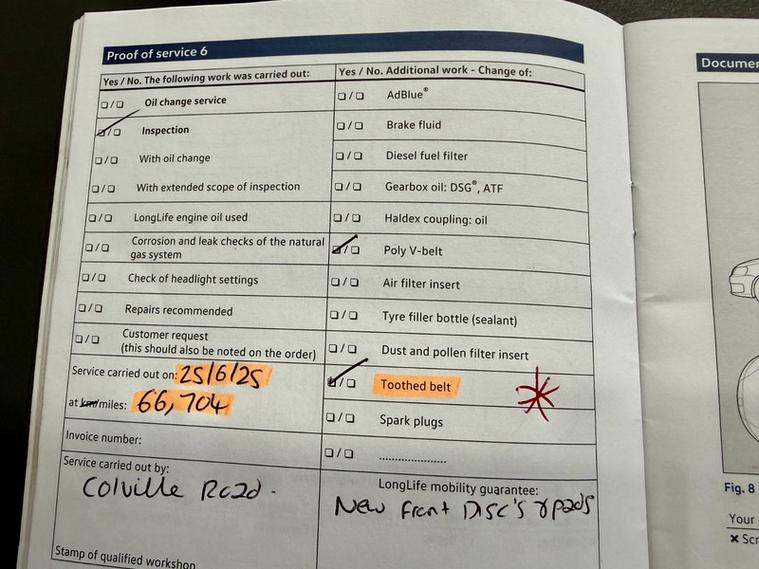 Proof of service 6
Yes / No. The following work was carried out:
Yes / No. Additional work - Change of:
Oil change service
AdBlue®
Inspection
Brake fluid
With oil change
Diesel fuel filter
With extended scope of inspection
Gearbox oil: DSG®, ATF
LongLife engine oil used
Haldex coupling: oil
Corrosion and leak checks of the natural
gas system
Poly V-belt
Check of headlight settings
Air filter insert
Repairs recommended
Tyre filler bottle (sealant)
Customer request
(this should also be noted on the order)
Dust and pollen filter insert
Service carried out on: 25/6/25
Toothed belt
at km/miles: 66,704
Spark plugs
Invoice number:
Service carried out by:
Colville Road.
LongLife mobility guarantee:
New Front DISC'S & pads
Stamp of qualified workshop
Documen
Fig. 8
Your
× Scr